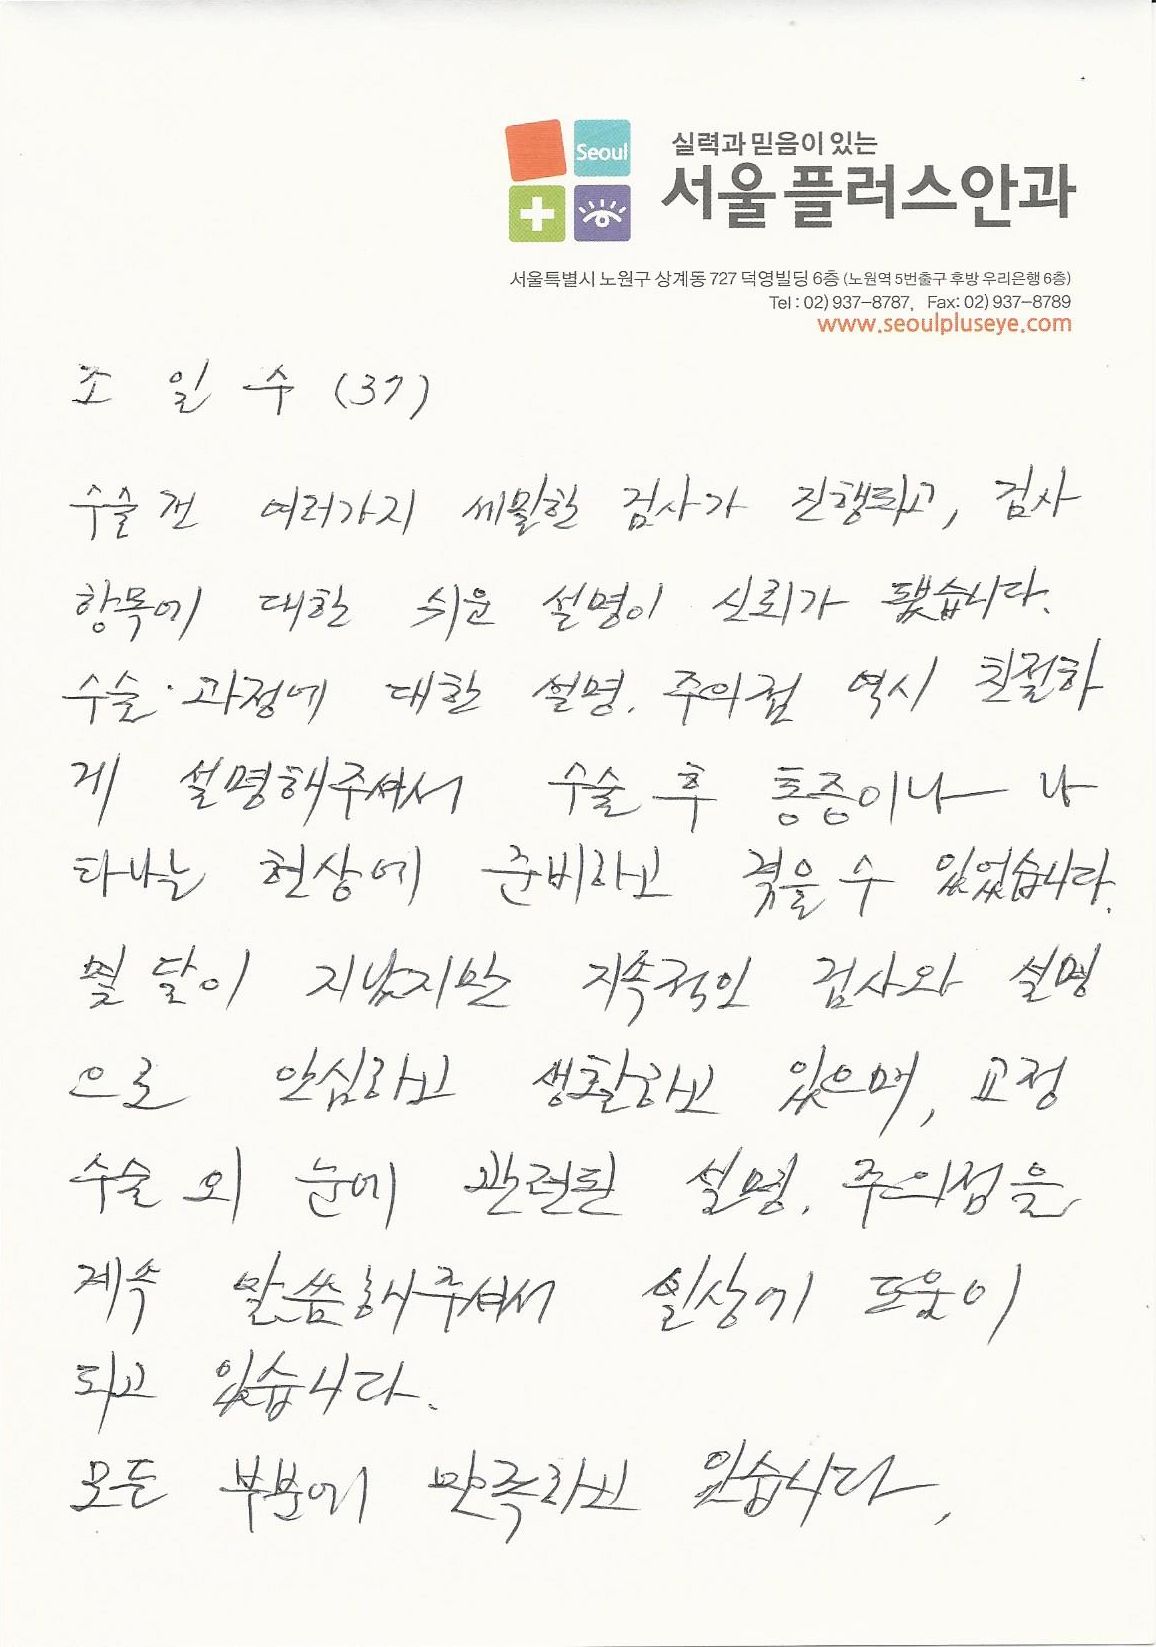 Seoul
실력과 믿음이 있는
서울플러스안과
서울특별시 노원구 상계동 727 덕영빌딩 6층 (노원역 5번출구 후방 우리은행 6층)
Tel : 02) 937-8787,   Fax: 02) 937-8789
www.seoulpluseye.com
조 일 수 (37)
수술 전 여러가지 세밀한 검사가 진행되고, 검사
항목에 대한 쉬운 설명이 신뢰가 됐습니다.
수술·과정에 대한 설명. 주의점 역시 친절하
게 설명해주셔서 수술 후 통증이나 나
타나는 현상에 준비하고 겪을 수 있었습니다.
몇 달이 지났지만 지속적인 검사와 설명
으로 안심하고 생활하고 있으며, 교정
수술 외 눈에 관련된 설명. 주의점을
계속 말씀해주셔서 일상에 도움이
되고 있습니다.
모든 부분에 만족하고 있습니다.